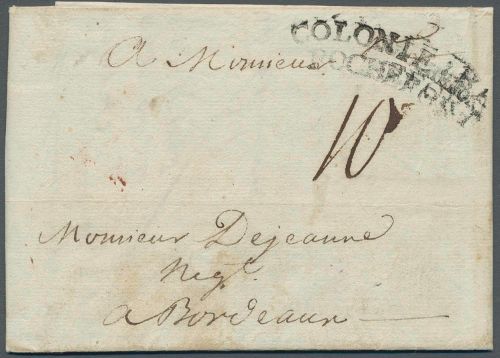 COLONIE PAR
ROCHEFORT
A Monsieur
10
Monsieur Dejeanne
Negt.
a Bordeaux